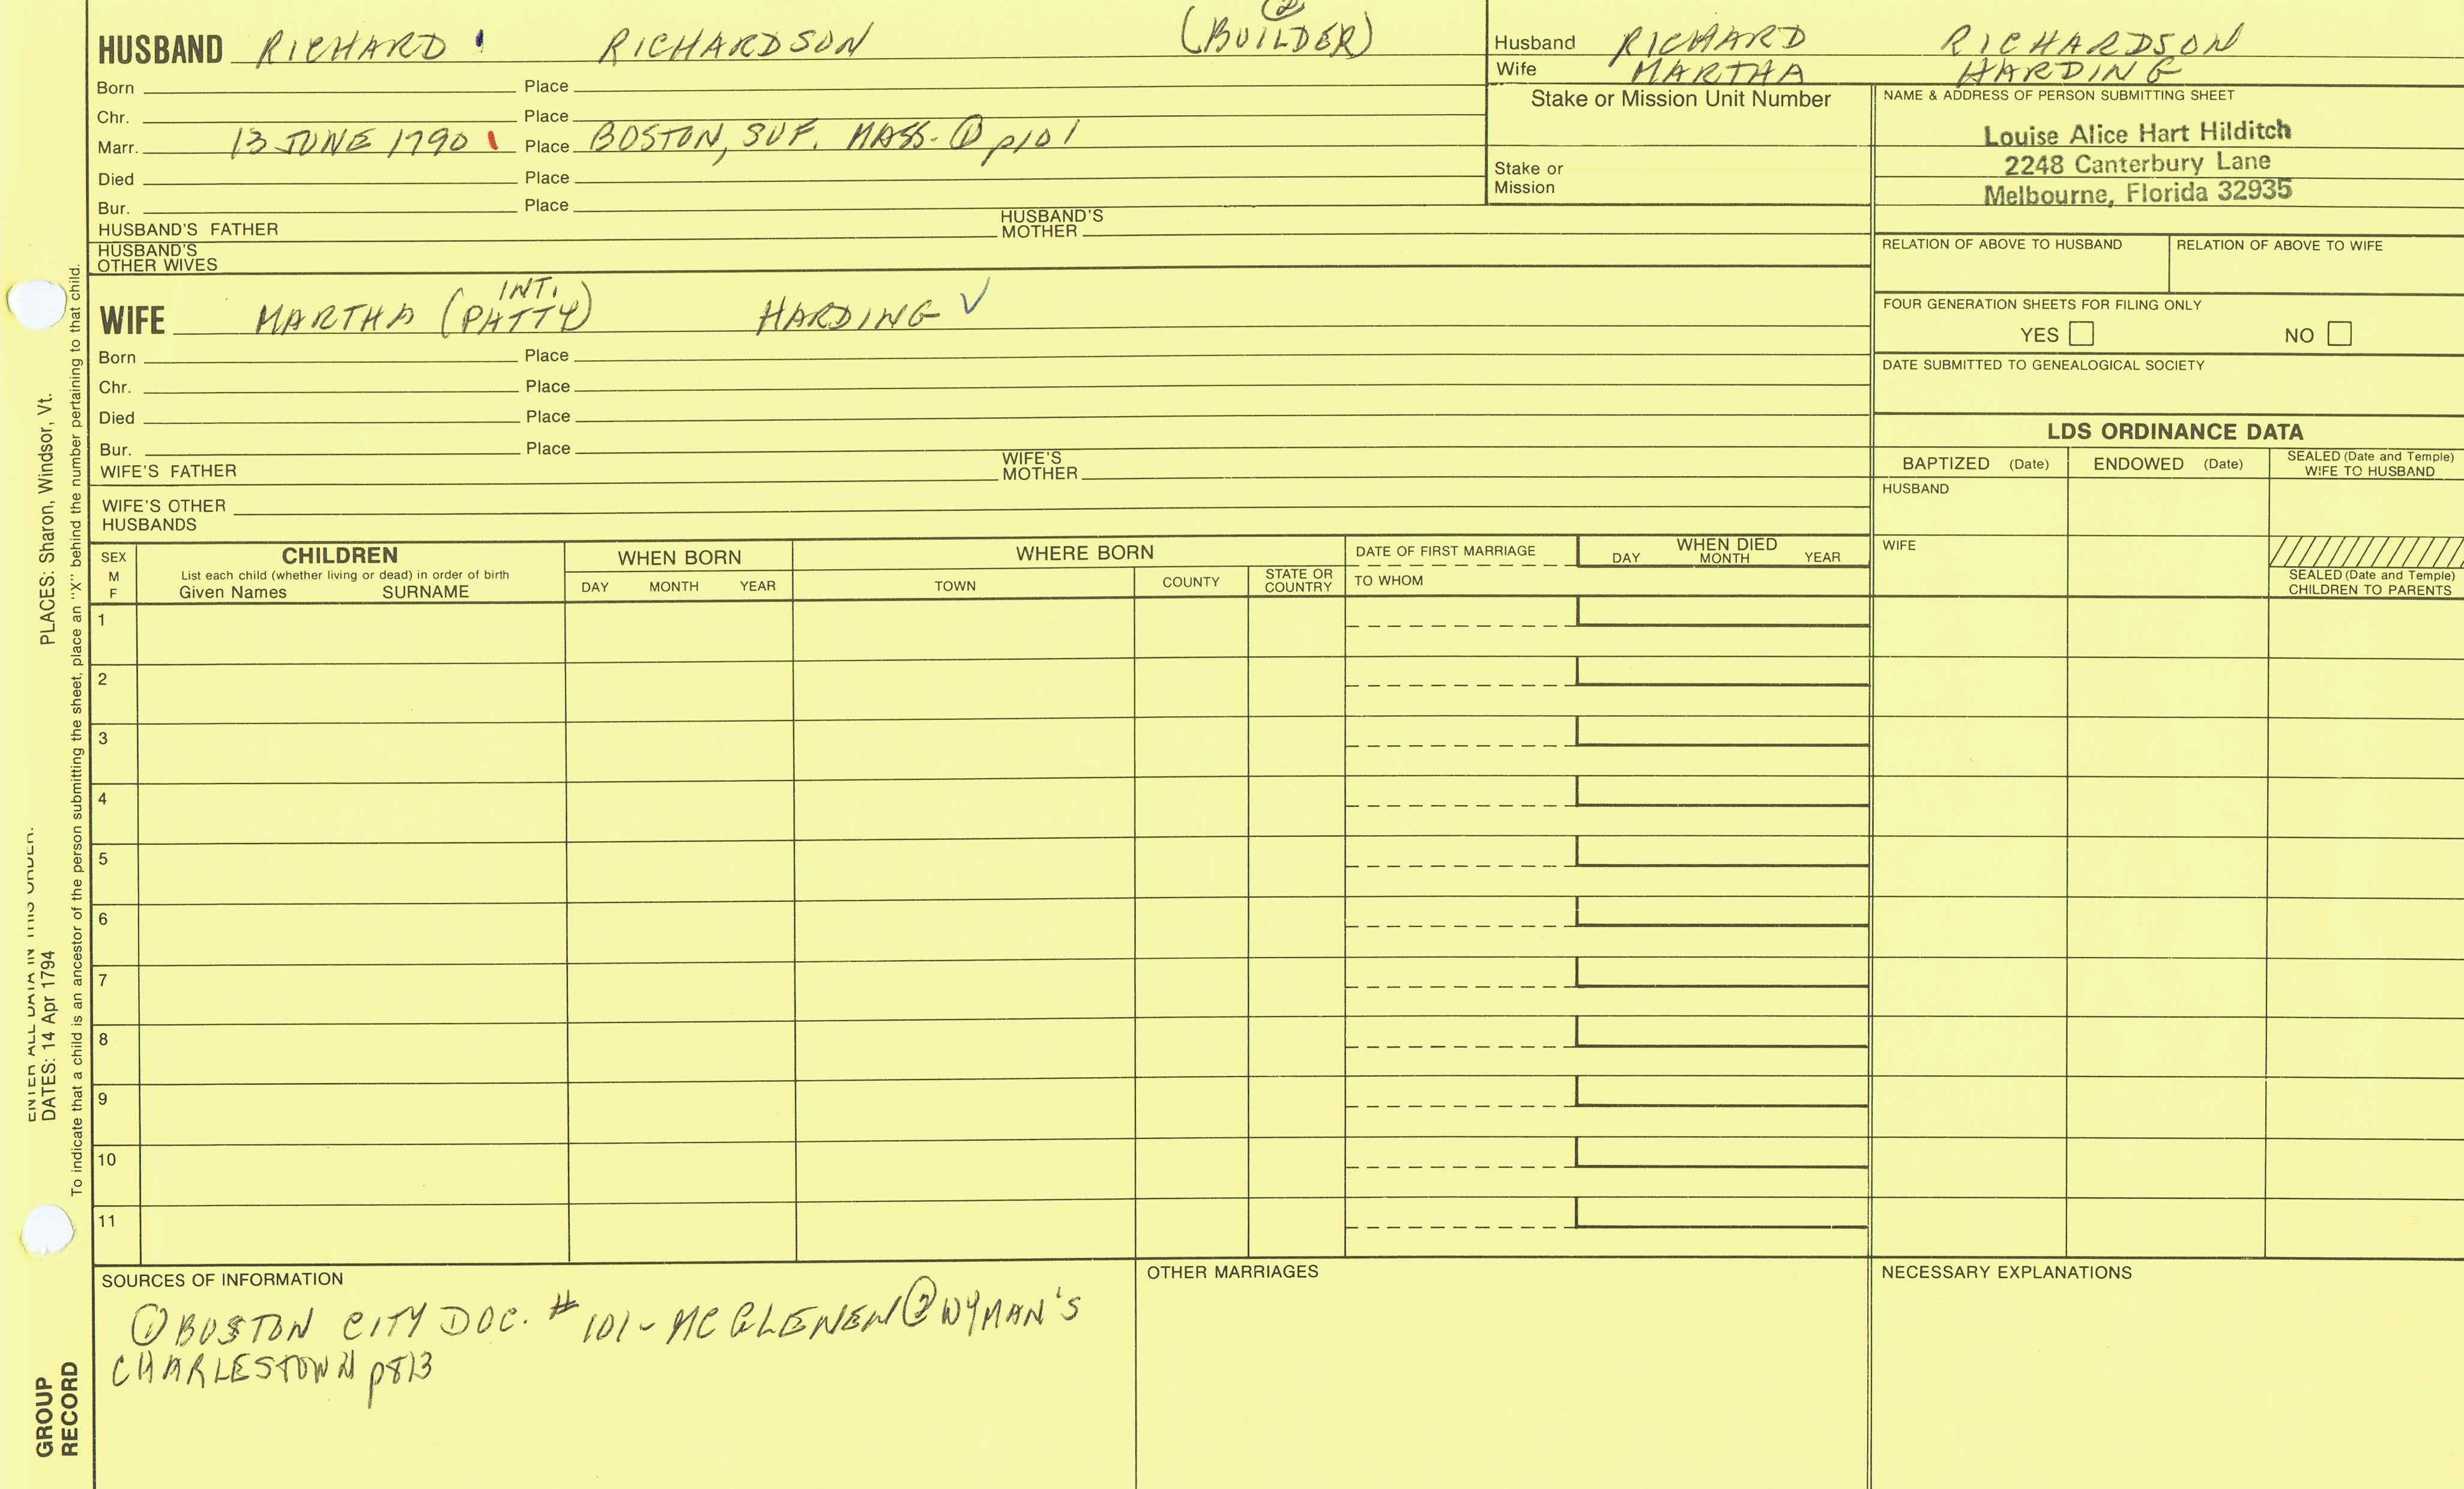 ②
HUSBAND RICHARD RICHARDSON (BUILDER)
Born Place
Chr. Place
Marr. 13 JUNE 1790 Place BOSTON, SUF. MASS. ① p101
Died Place
Bur. Place
HUSBAND'S FATHER HUSBAND'S MOTHER
HUSBAND'S
OTHER WIVES
INT.
WIFE MARTHA (PATTY) HARDING ✓
Born Place
Chr. Place
Died Place
Bur. Place
WIFE'S FATHER WIFE'S MOTHER
WIFE'S OTHER
HUSBANDS
Husband RICHARD RICHARDSON
Wife MARTHA HARDING
Stake or Mission Unit Number
Stake or
Mission
NAME & ADDRESS OF PERSON SUBMITTING SHEET
Louise Alice Hart Hilditch
2248 Canterbury Lane
Melbourne, Florida 32935
RELATION OF ABOVE TO HUSBAND RELATION OF ABOVE TO WIFE
FOUR GENERATION SHEETS FOR FILING ONLY
YES NO
DATE SUBMITTED TO GENEALOGICAL SOCIETY
LDS ORDINANCE DATA
BAPTIZED (Date) ENDOWED (Date) SEALED (Date and Temple)
WIFE TO HUSBAND
HUSBAND
WIFE
SEALED (Date and Temple)
CHILDREN TO PARENTS
SEX
M
F
CHILDREN
List each child (whether living or dead) in order of birth
Given Names SURNAME
WHEN BORN
DAY MONTH YEAR
WHERE BORN
TOWN COUNTY STATE OR
COUNTRY
DATE OF FIRST MARRIAGE
TO WHOM
WHEN DIED
DAY MONTH YEAR
1
2
3
4
5
6
7
8
9
10
11
SOURCES OF INFORMATION
① BOSTON CITY DOC. # 101 - MCGLENEN ② WYMAN'S
CHARLESTOWN p813
OTHER MARRIAGES
NECESSARY EXPLANATIONS
ENTER ALL DATA IN THIS ORDER:
DATES: 14 Apr 1794 PLACES: Sharon, Windsor, Vt.
To indicate that a child is an ancestor of the person submitting the sheet, place an "X" behind the number pertaining to that child.
GROUP
RECORD